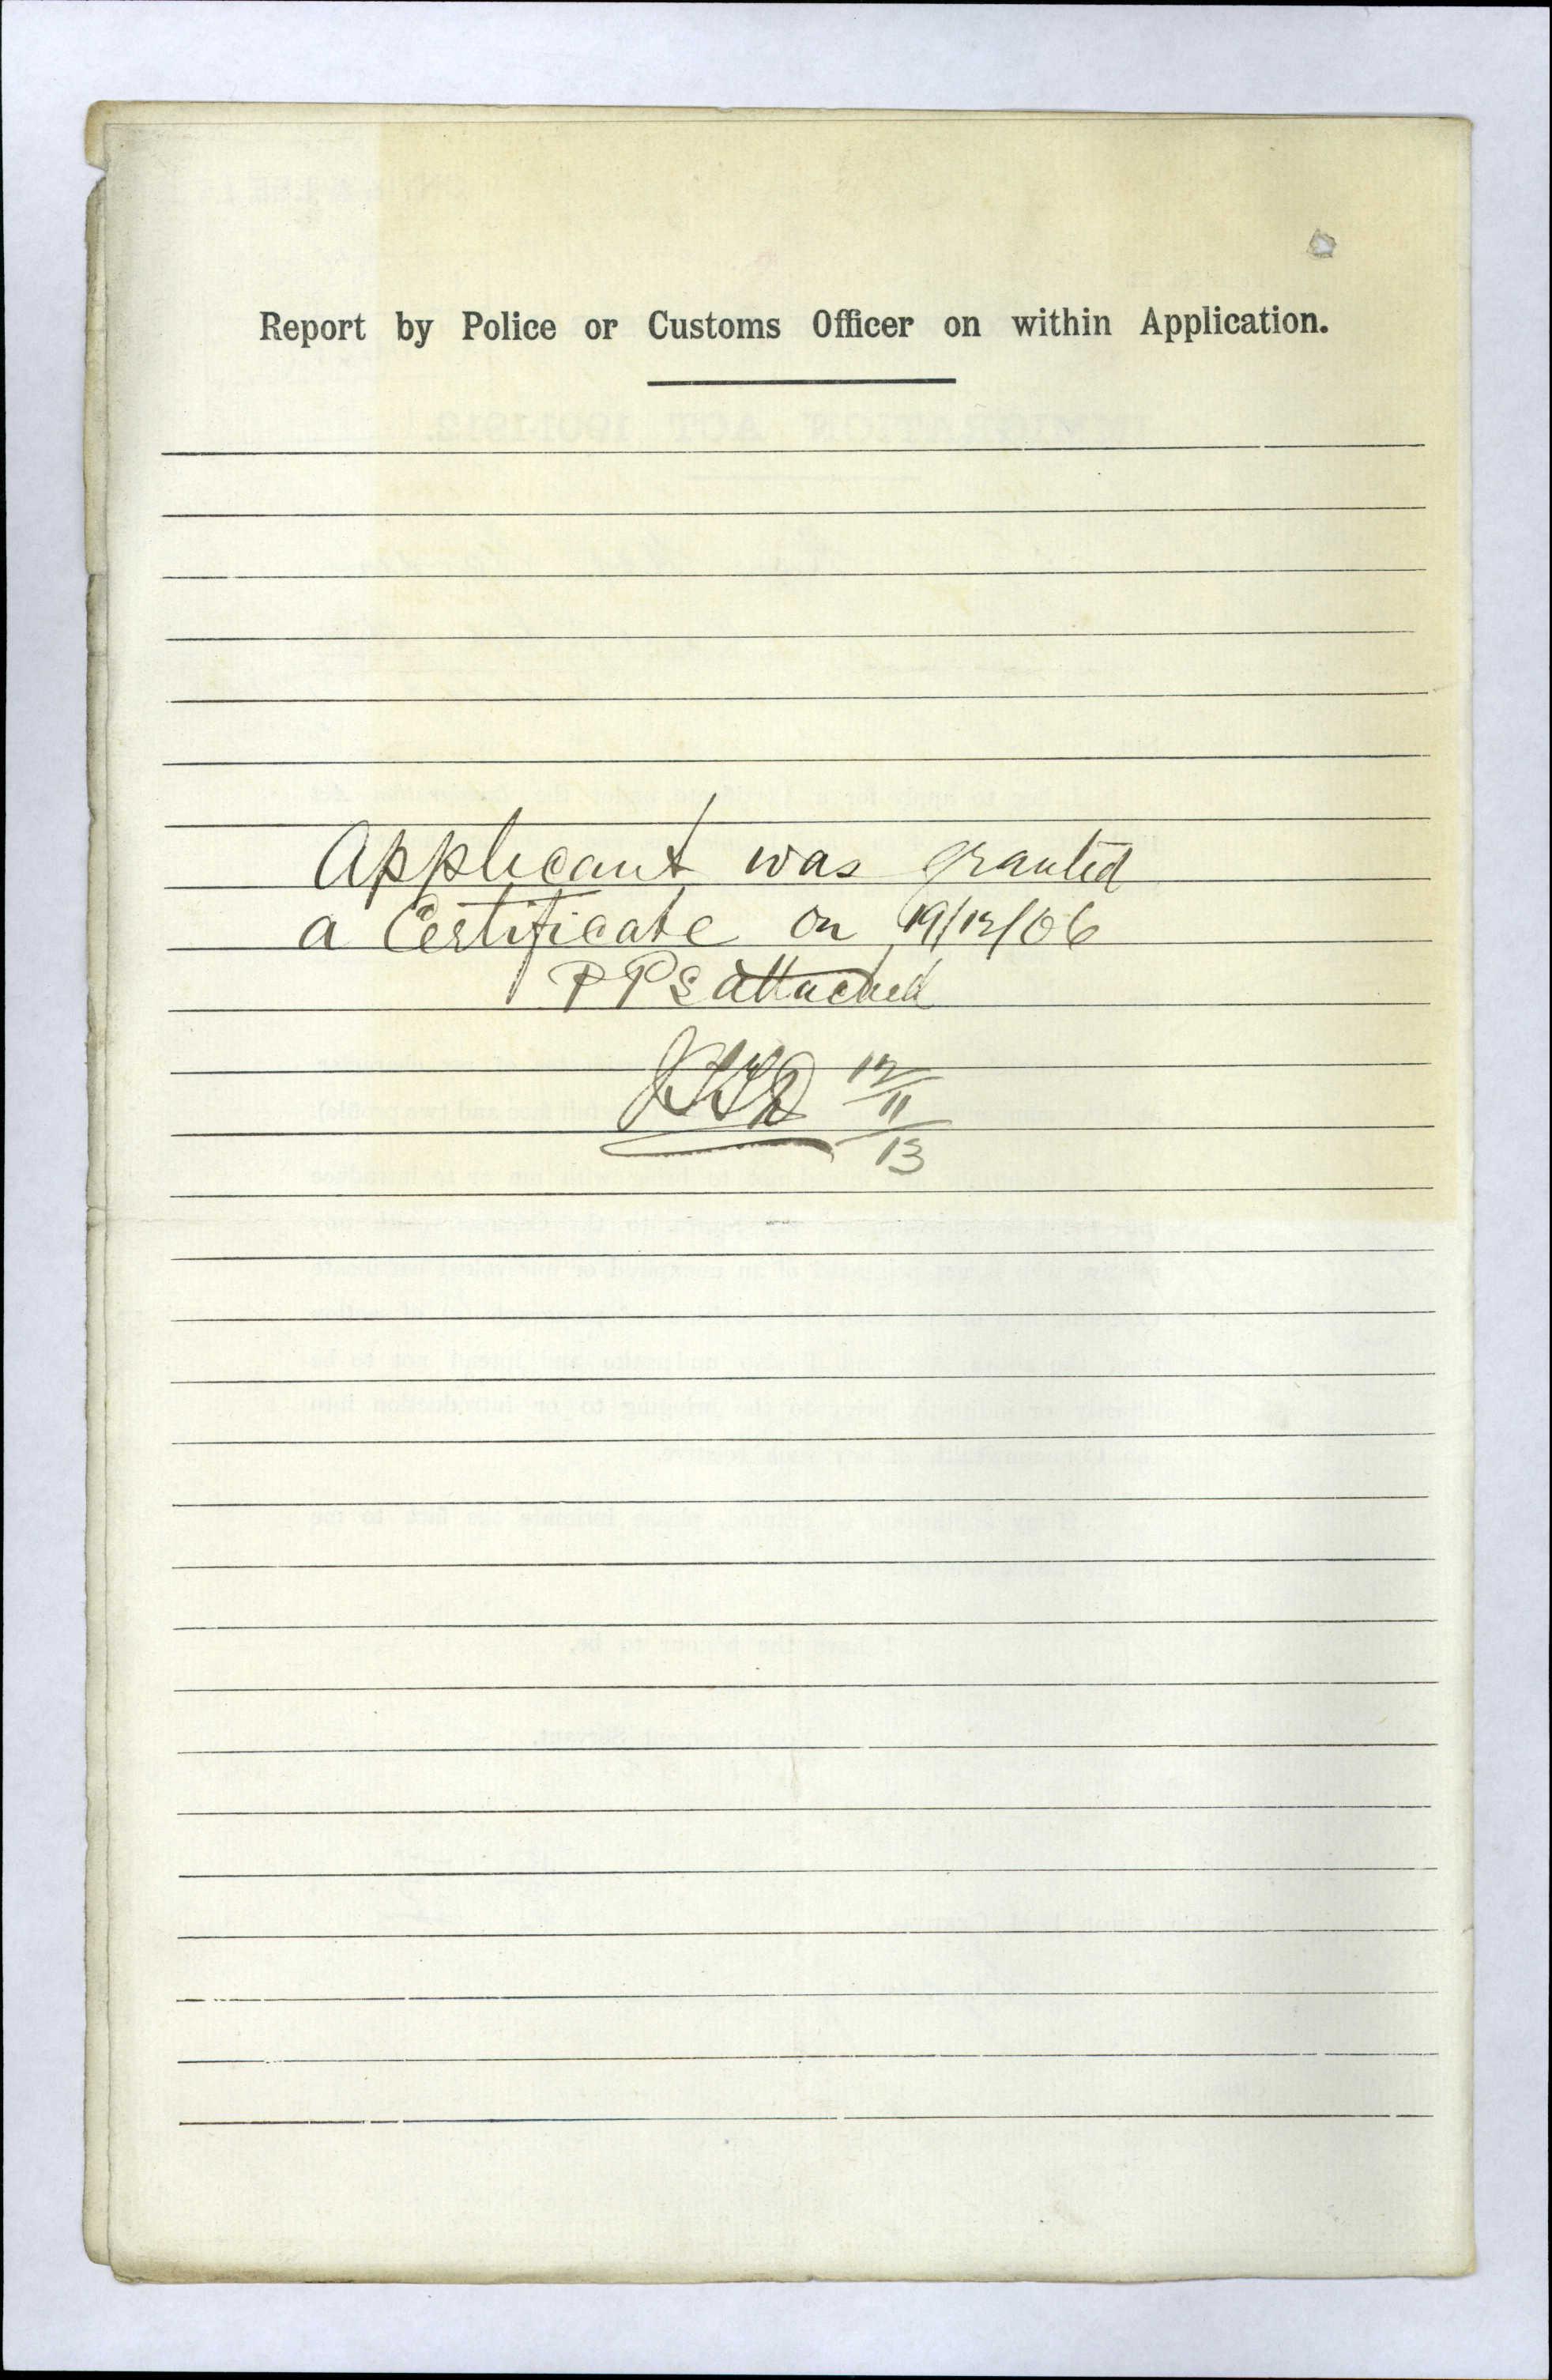 Report by Police or Customs Officer on within Application.
Applicant was granted
a Certificate on 19/12/06
PPs attached
12/11/13